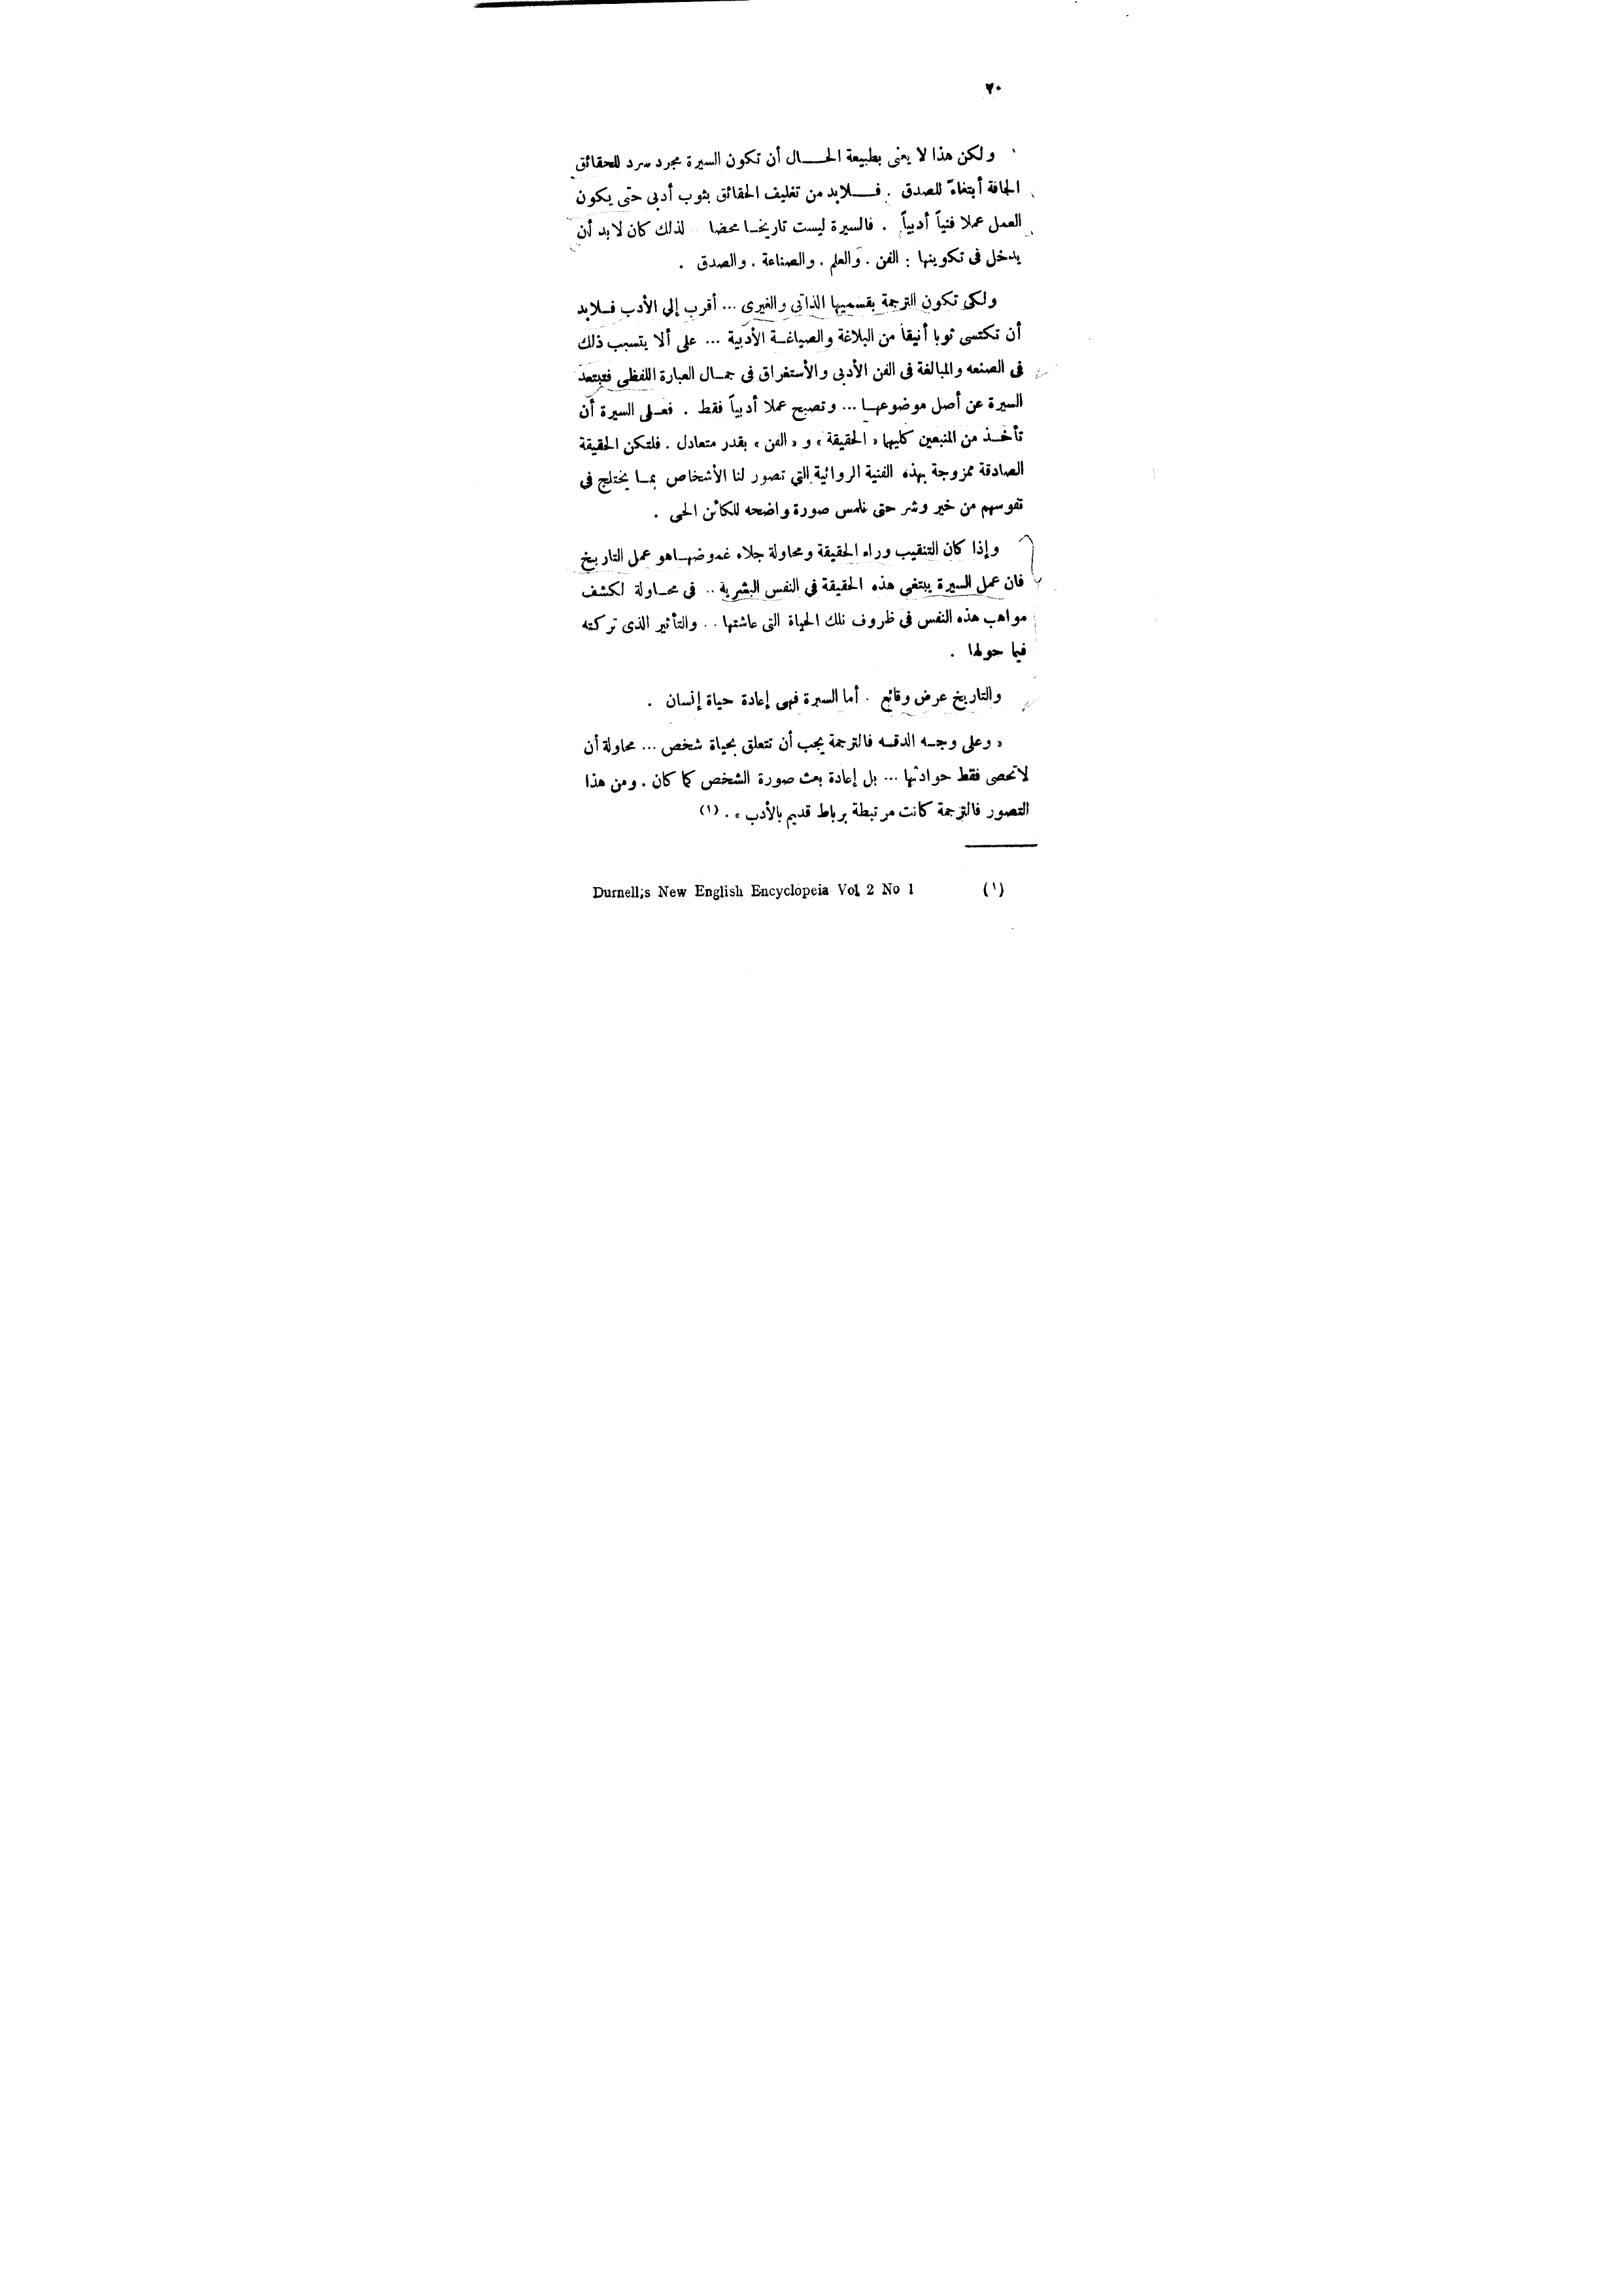 ٢٠
ولكن هذا لا يعنى بطبيعة الحال أن تكون السيرة مجرد سرد للحقائق
الجافة أبتغاءً للصدق . فلابد من تغليف الحقائق بثوب أدبى حتى يكون
العمل عملا فنياً أدبياً . فالسيرة ليست تاريخا محضا لذلك كان لابد أن
يدخل فى تكوينها : الفن . والعلم . والصناعة . والصدق .
ولكى تكون الترجمة بقسميها الذاتى والغيرى ... أقرب إلى الأدب فلابد
أن تكتسى ثوبا أنيقا من البلاغة والصياغة الأدبية ... على ألا يتسبب ذلك
فى الصنعه والمبالغة فى الفن الأدبى والأستغراق فى جمال العبارة اللفظى فتبتعد
السيرة عن أصل موضوعها ... وتصبح عملا أدبياً فقط . فعلى السيرة أن
تأخذ من المنبعين كليهما « الحقيقة » و « الفن » بقدر متعادل . فلتكن الحقيقة
الصادقة ممزوجة بهذه الفنية الروائية التي تصور لنا الأشخاص بما يختلج فى
نفوسهم من خير وشر حتى نلمس صورة واضحه للكائن الحى .
وإذا كان التنقيب وراء الحقيقة ومحاولة جلاء غموضها هو عمل التاريخ
فان عمل السيرة يبتغى هذه الحقيقة فى النفس البشرية .. فى محاولة لكشف
مواهب هذه النفس فى ظروف تلك الحياة التى عاشتها .. والتأثير الذى تركته
فيما حولها .
والتاريخ عرض وقائع . أما السيرة فهى إعادة حياة إنسان .
« وعلى وجه الدقه فالترجمة يجب أن تتعلق بحياة شخص ... محاولة أن
لاتحصى فقط حوادثها ... بل إعادة بعث صورة الشخص كما كان . ومن هذا
التصور فالترجمة كانت مرتبطة برباط قديم بالأدب » . (١)
(١) Durnell;s New English Encyclopeia Vol 2 No 1